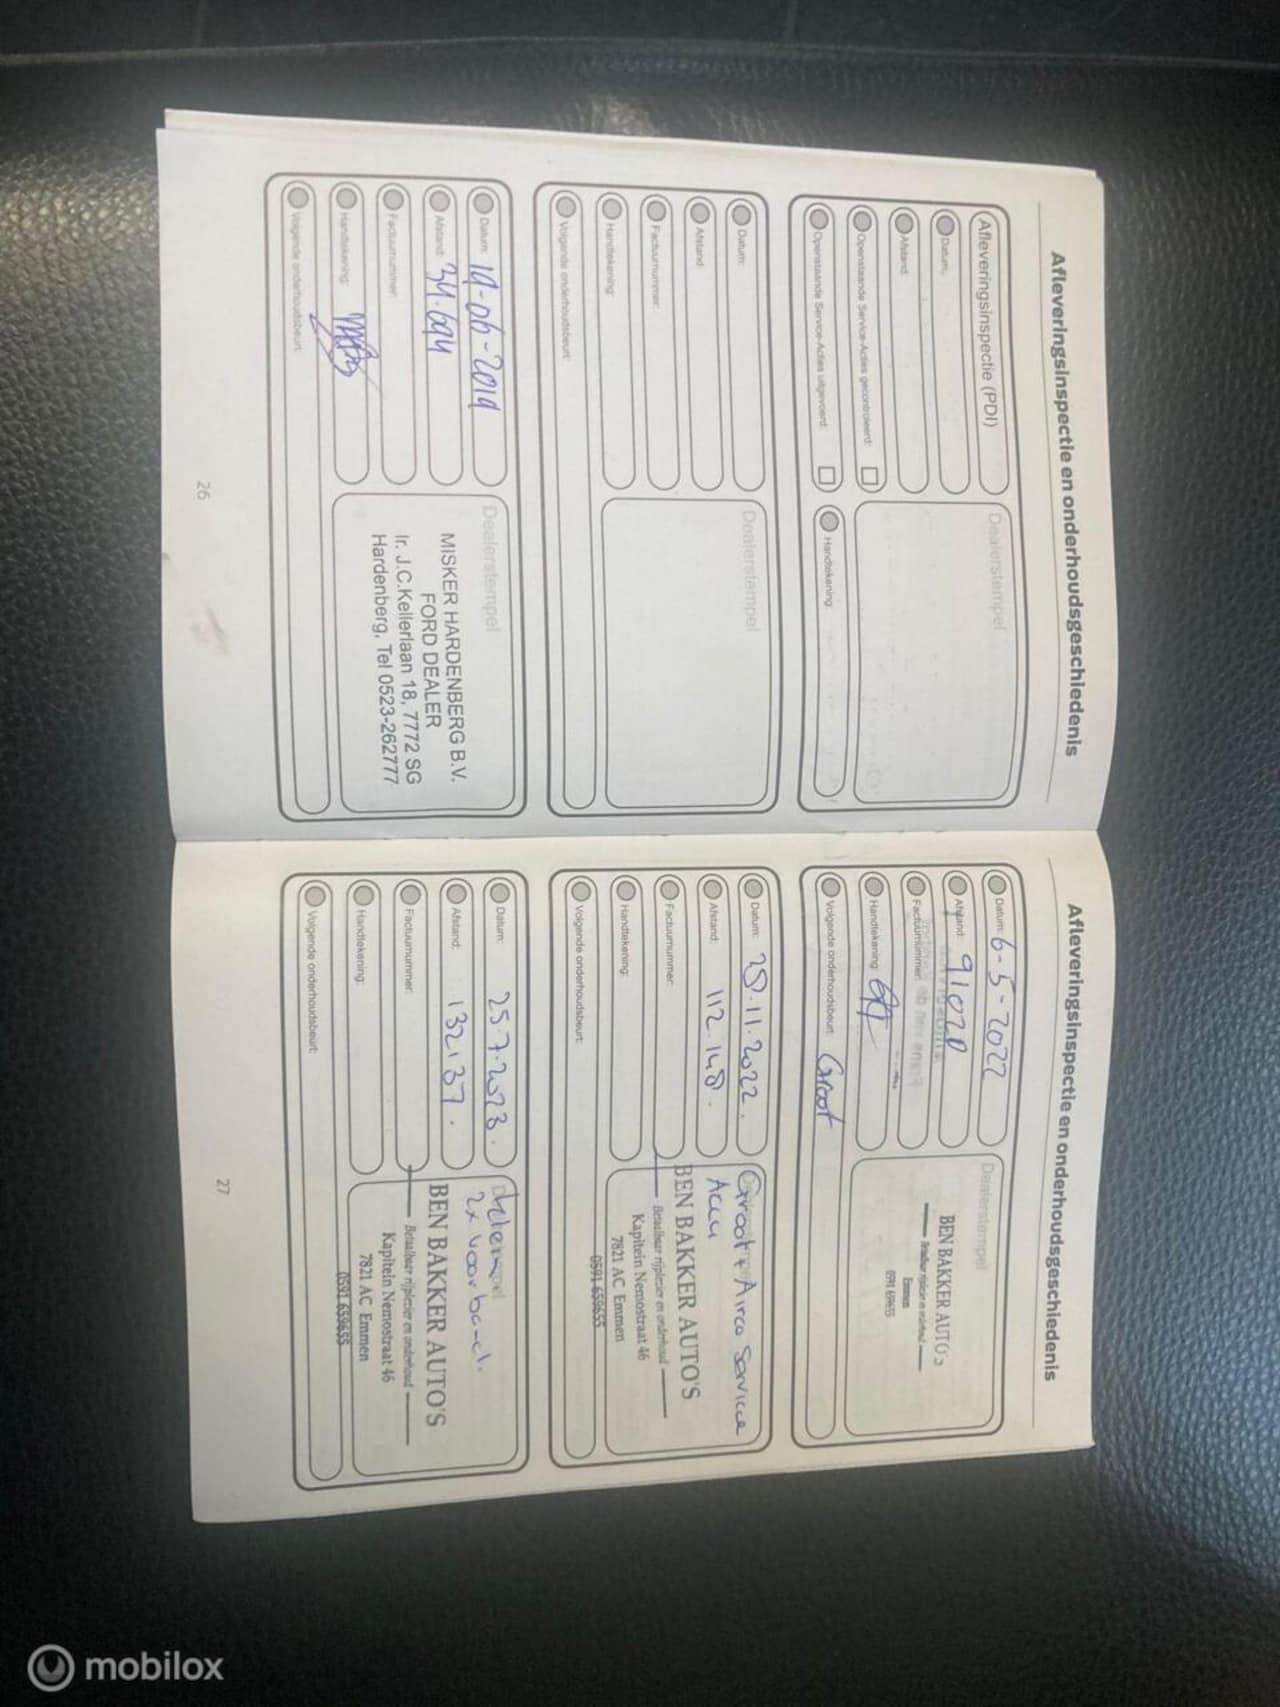 Afleveringsinspectie en onderhoudsgeschiedenis
Afleveringsinspectie (PDI)
Dealerstempel
Datum:
Afstand:
Openstaande Service-Acties gecontroleerd:
Openstaande Service-Acties uitgevoerd:
Handtekening:
Datum:
Dealerstempel
Afstand:
Factuurnummer:
Handtekening:
Volgende onderhoudsbeurt:
Datum: 19-06-2019
Dealerstempel
Afstand: 34.694
MISKER HARDENBERG B.V.
FORD DEALER
Factuurnummer:
Ir. J.C.Kellerlaan 18, 7772 SG
Hardenberg, Tel 0523-262777
Handtekening:
Volgende onderhoudsbeurt:
26
Afleveringsinspectie en onderhoudsgeschiedenis
Datum: 6-5-2022
Dealerstempel
Afstand: 91020
BEN BAKKER AUTO's
Betaalbaar rijplezier en onderhoud
Factuurnummer:
Emmen
0591 659655
Handtekening:
Volgende onderhoudsbeurt: Groot
Datum: 28.11.2022.
Groot + Airco Service
Afstand: 112.148.
Accu
BEN BAKKER AUTO'S
Factuurnummer:
Betaalbaar rijplezier en onderhoud
Kapitein Nemostraat 46
Handtekening:
7821 AC Emmen
0591 659655
Volgende onderhoudsbeurt:
Datum: 25.7.2023.
2x voorband.
Afstand: 132.137.
BEN BAKKER AUTO'S
Factuurnummer:
Betaalbaar rijplezier en onderhoud
Kapitein Nemostraat 46
Handtekening:
7821 AC Emmen
0591 659655
Volgende onderhoudsbeurt:
27
mobilox